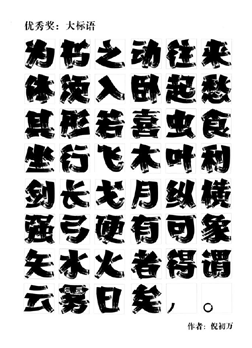 优秀奖：大标语
为书之动往来
体须入卧起愁
其形若喜虫食
坐行飞木叶利
剑长戈月纵横
强弓硬有可象
矢水火者得谓
云雾日矣，。
作者：倪初万